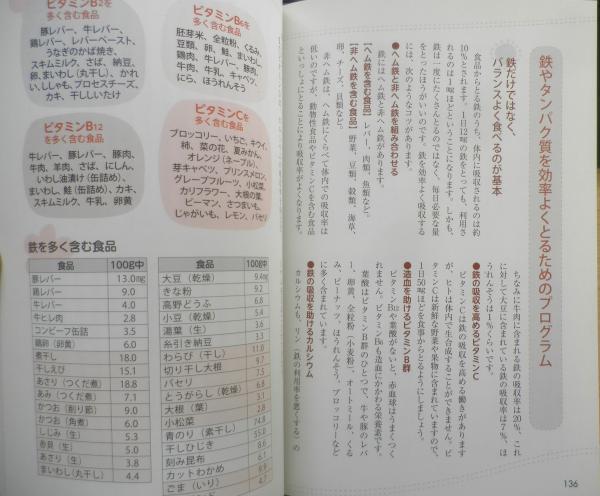 鉄やタンパク質を効率よくとるためのプログラム
鉄だけではなく、
バランスよく食べるのが基本
食品からとる鉄のうち、体内に吸収されるのは約
10%とされます。1日12mgの鉄をとっても、利用さ
れるのは1mgほどということになります。しかも、
鉄は一度にたくさんとるのではなく、毎日必要な量
をとったほうがいいのです。鉄を効率よく吸収する
には、次のようなコツがあります。
●ヘム鉄と非ヘム鉄を組み合わせる
鉄にはヘム鉄と非ヘム鉄があります。
【ヘム鉄を含む食品】レバー、肉類、魚類など。
【非ヘム鉄を含む食品】野菜、豆類、穀類、海草、
卵、チーズ、貝類など。
非ヘム鉄は、ヘム鉄にくらべて体内での吸収率は
低いのですが、動物性食品やビタミンCを含む食品
といっしょにとることにより吸収率がよくなります。
ちなみに牛肉に含まれる鉄の吸収率は20%、これ
に対して大豆に含まれている鉄の吸収率は7%、ほ
うれんそうは1%くらいです。
●鉄の吸収を高めるビタミンC
ビタミンCには鉄の吸収を高める働きがあります
が、ヒトは体内で生合成することができません。ビ
タミンCは新鮮な野菜や果物に含まれていますので、
1日50mgほどを食事からとるようにしましょう。
●造血を助けるビタミンB群
ビタミンB12や葉酸がないと、赤血球はうまくつく
れません。ビタミンB6も造血にかかわる栄養素です。
葉酸はビタミンB群のひとつで、牛や豚のレバ
ー、卵黄、全粒粉(小麦粉)、オートミール、くる
み、ピーナッツ、ほうれんそう、ブロッコリーなど
に多く含まれています。
●鉄の吸収を助けるカルシウム
カルシウムも、リン(鉄の利用率を悪くする)の
136
ビタミンB2を
多く含む食品
豚レバー、牛レバー、
鶏レバー、レバーペースト、
うなぎのかば焼き、
スキムミルク、さば、納豆、
卵、まいわし(丸干し)、かれ
い、ししゃも、プロセスチーズ、
カキ、干ししいたけ
ビタミンB6を
多く含む食品
胚芽米、全粒粉、くるみ、
豆類、卵、鮭、まいわし、
鶏肉、牛レバー、豚肉、
牛肉、牛乳、キャベツ、
にら、ほうれんそう
ビタミンB12
を多く含む食品
牛レバー、豚レバー、豚肉、
牛肉、羊肉、さば、にしん、
いわし油漬け(缶詰め)、
まいわし、鮭(缶詰め)、カキ、
スキムミルク、牛乳、卵黄
ビタミンCを
多く含む食品
ブロッコリー、いちご、キウイ、
柿、菜の花、夏みかん、
オレンジ(ネーブル)、
芽キャベツ、プリンスメロン、
グレープフルーツ、小松菜、
カリフラワー、大根の葉、
ピーマン、さつまいも、
じゃがいも、レモン、パセリ
鉄を多く含む食品
食品 100g中
豚レバー 13.0mg
鶏レバー 9.0
牛レバー 4.0
牛ヒレ肉 2.8
コンビーフ缶詰 3.5
鶏卵(卵黄) 6.0
煮干し 18.0
干しえび 15.1
あさり(つくだ煮) 18.8
あみ(つくだ煮) 7.1
かつお(削り節) 9.0
かつお(角煮) 6.0
しじみ(生) 5.3
赤貝(生) 5.0
あさり(生) 3.8
まいわし(丸干し) 4.4
食品 100g中
大豆(乾燥) 9.4mg
きな粉 9.2
高野どうふ 6.8
小豆(乾燥) 5.4
湯葉(生) 3.6
糸引き納豆 3.3
わらび(干し) 11.0
切り干し大根 9.7
パセリ 7.5
とうがらし(乾燥) 6.8
大根(葉) 3.1
小松菜 2.8
青のり(素干し) 74.8
干しひじき 55.0
刻み昆布 8.6
カットわかめ 6.1
ごま(いり) 9.9